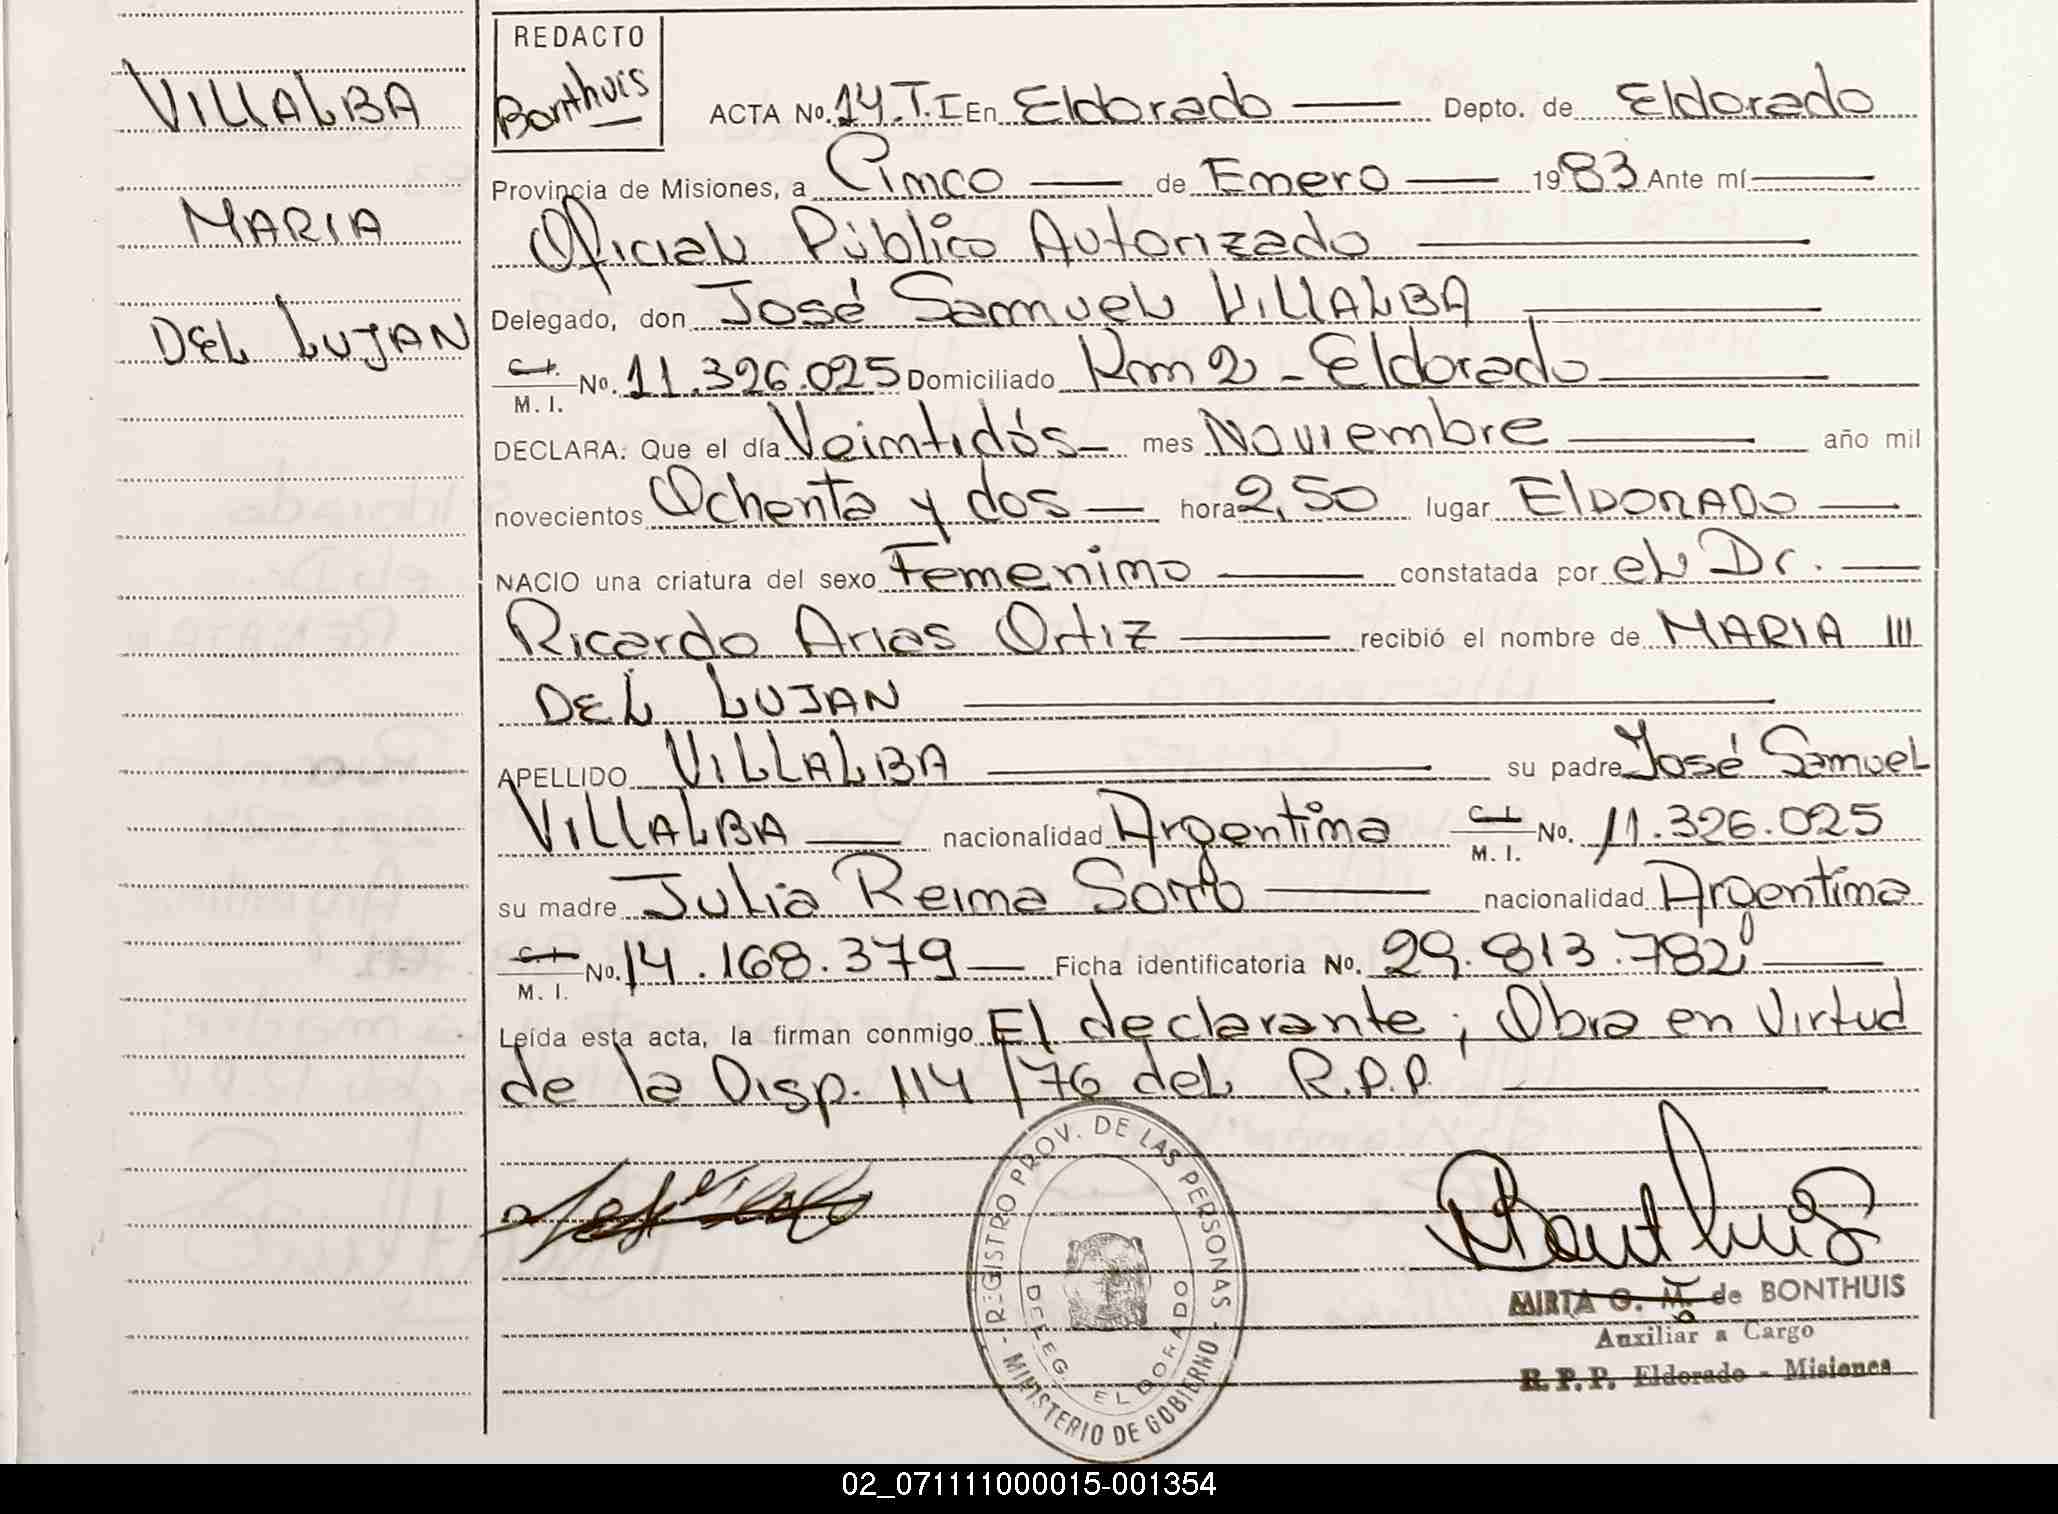 VILLALBA
MARIA
DEL LUJAN
REDACTO
Bonthuis
ACTA No. 14.T.I En Eldorado Depto. de Eldorado
Provincia de Misiones, a Cinco de Enero 1983 Ante mí
Oficial Público Autorizado
Delegado, don José Samuel VILLALBA
C.I. M. I. No. 11.326.025 Domiciliado Km 2 - Eldorado
DECLARA: Que el día Veintidós mes Noviembre año mil
novecientos Ochenta y dos hora 2,50 lugar ELDORADO
NACIO una criatura del sexo Femenino constatada por el Dr.
Ricardo Arias Ortiz recibió el nombre de MARIA
DEL LUJAN
APELLIDO VILLALBA su padre José Samuel
VILLALBA nacionalidad Argentina C.I. M. I. No. 11.326.025
su madre Julia Reina nacionalidad Argentina
C.I. M. I. No. 14.168.379 Ficha identificatoria No. 29.813.782
Leída esta acta, la firman conmigo El declarante; Obra en Virtud
de la Disp. 114/76 del R.P.P.
REGISTRO PROV. DE LAS PERSONAS - MINISTERIO DE GOBIERNO -
DELEG. ELDORADO
Bonthuis
MIRTA G. M. de BONTHUIS
Auxiliar a Cargo
R. P. P. Eldorado - Misiones
02_071111000015-001354